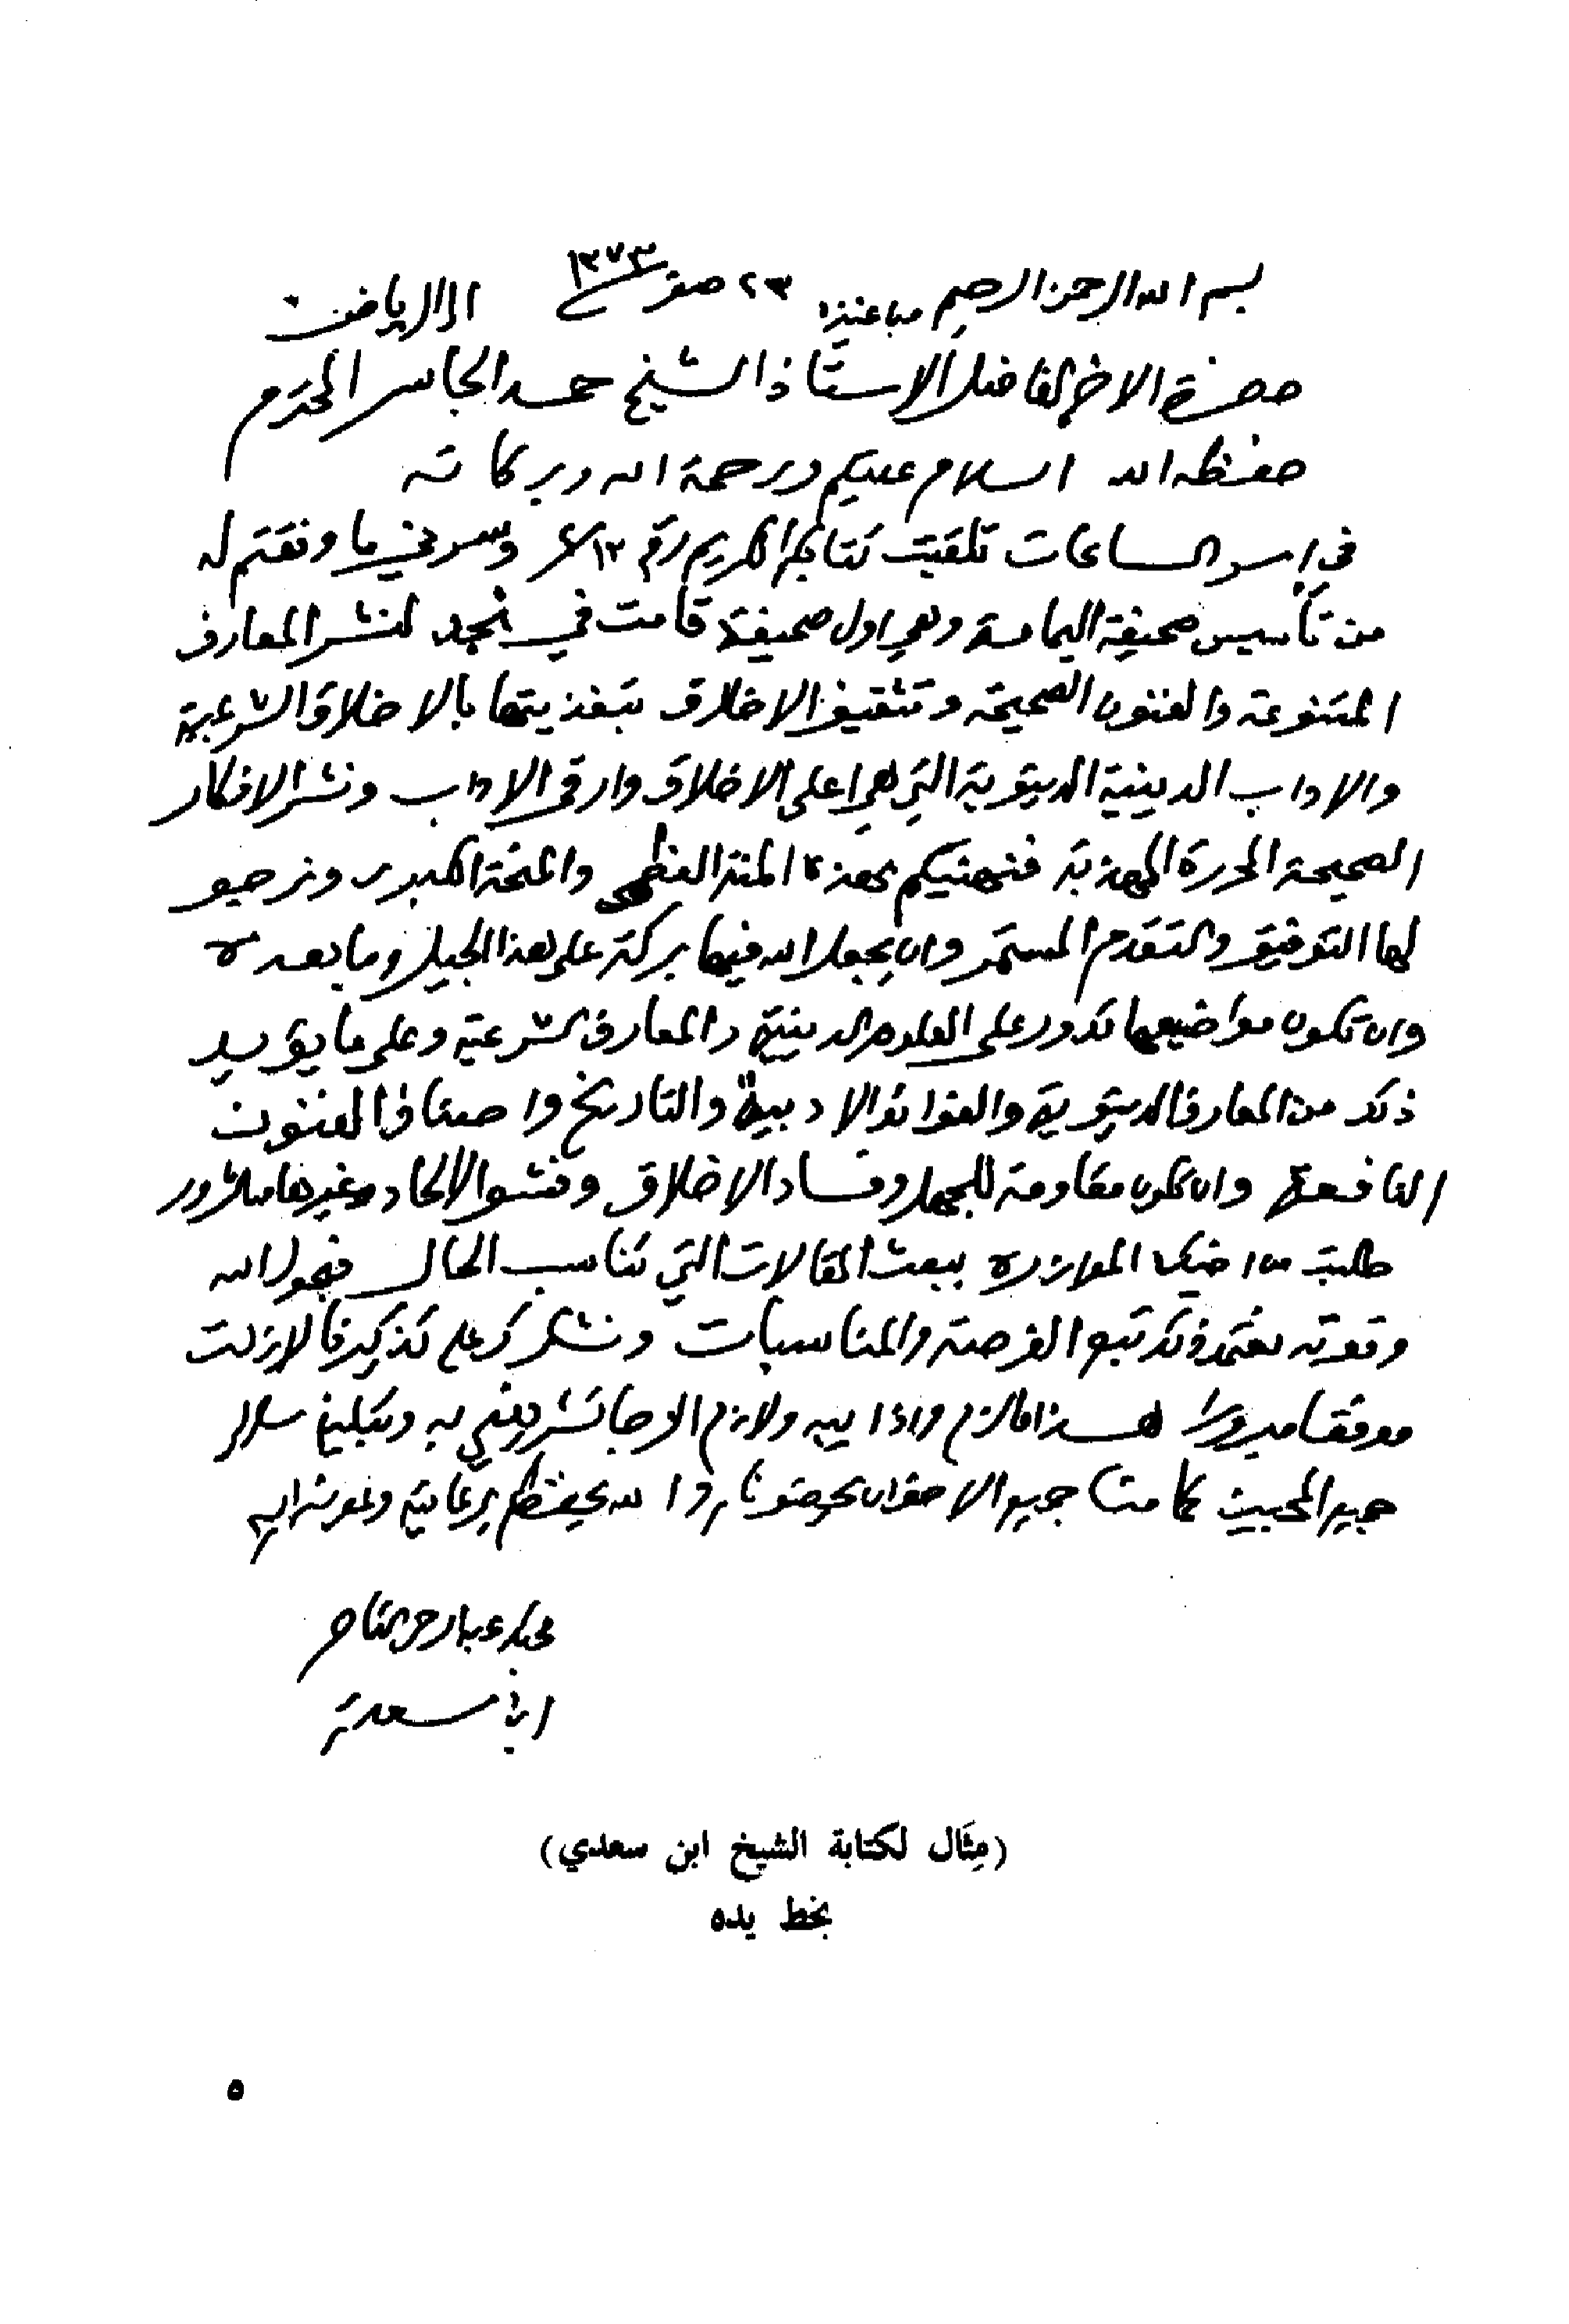 بسم الله الرحمن الرحيم من عنيزة ٢٣ صفر ١٣٧٣ الى الرياض
حضرة الاخ الفاضل الاستاذ الشيخ حمد الجاسر المحترم
حفظه الله السلام عليكم ورحمة الله وبركاته
في اسر الساعات تلقيت كتابكم الكريم رقم وسرني ما وفقتم له
من تأسيس صحيفة اليمامة وهي اول صحيفة قامت في نجد لنشر المعارف
المتنوعة والفنون الصحيحة وتثقيف الاخلاق بتغذيتها بالاخلاق الشرعية
والاداب الدينية التي هي اعلى الاخلاق وارقى الاداب ونشر الافكار
الصحيحة المحررة المهذبة فنهنيكم بهذه المنة العظمى والمنحة الكبرى ونرجو
لها التوفيق والتقدم المستمر وان يجعل الله فيها بركة على هذا الجيل وما بعده
وان تكون مواضيعها تدور على العلوم الدينية والمعارف الشرعية وعلى ما يؤيد
ذلك من المعارف والفوائد الادبية والتاريخ واصناف الفنون
النافعة وان تكون مقاومة للجهل وفساد الاخلاق وفشو الالحاد وغيرها من الشرور
طلبت من اخيك الموازرة ببعث المقالات التي تناسب الحال فبحول الله
وقوته الفرصة والمناسبات ونشكرك على تذكيرنا لازلت
موفقا مبرورا هذا ما لزم ولازم الرجا تشريفي به وتبليغ سلامي
جميع المحبين كما منا جميع الاخوان والله يحفظكم برعايته
محبك عبدالرحمن الناصر
ابن سعدي
(مِثَال لكتابة الشيخ ابن سعدي)
بخط يده
٥